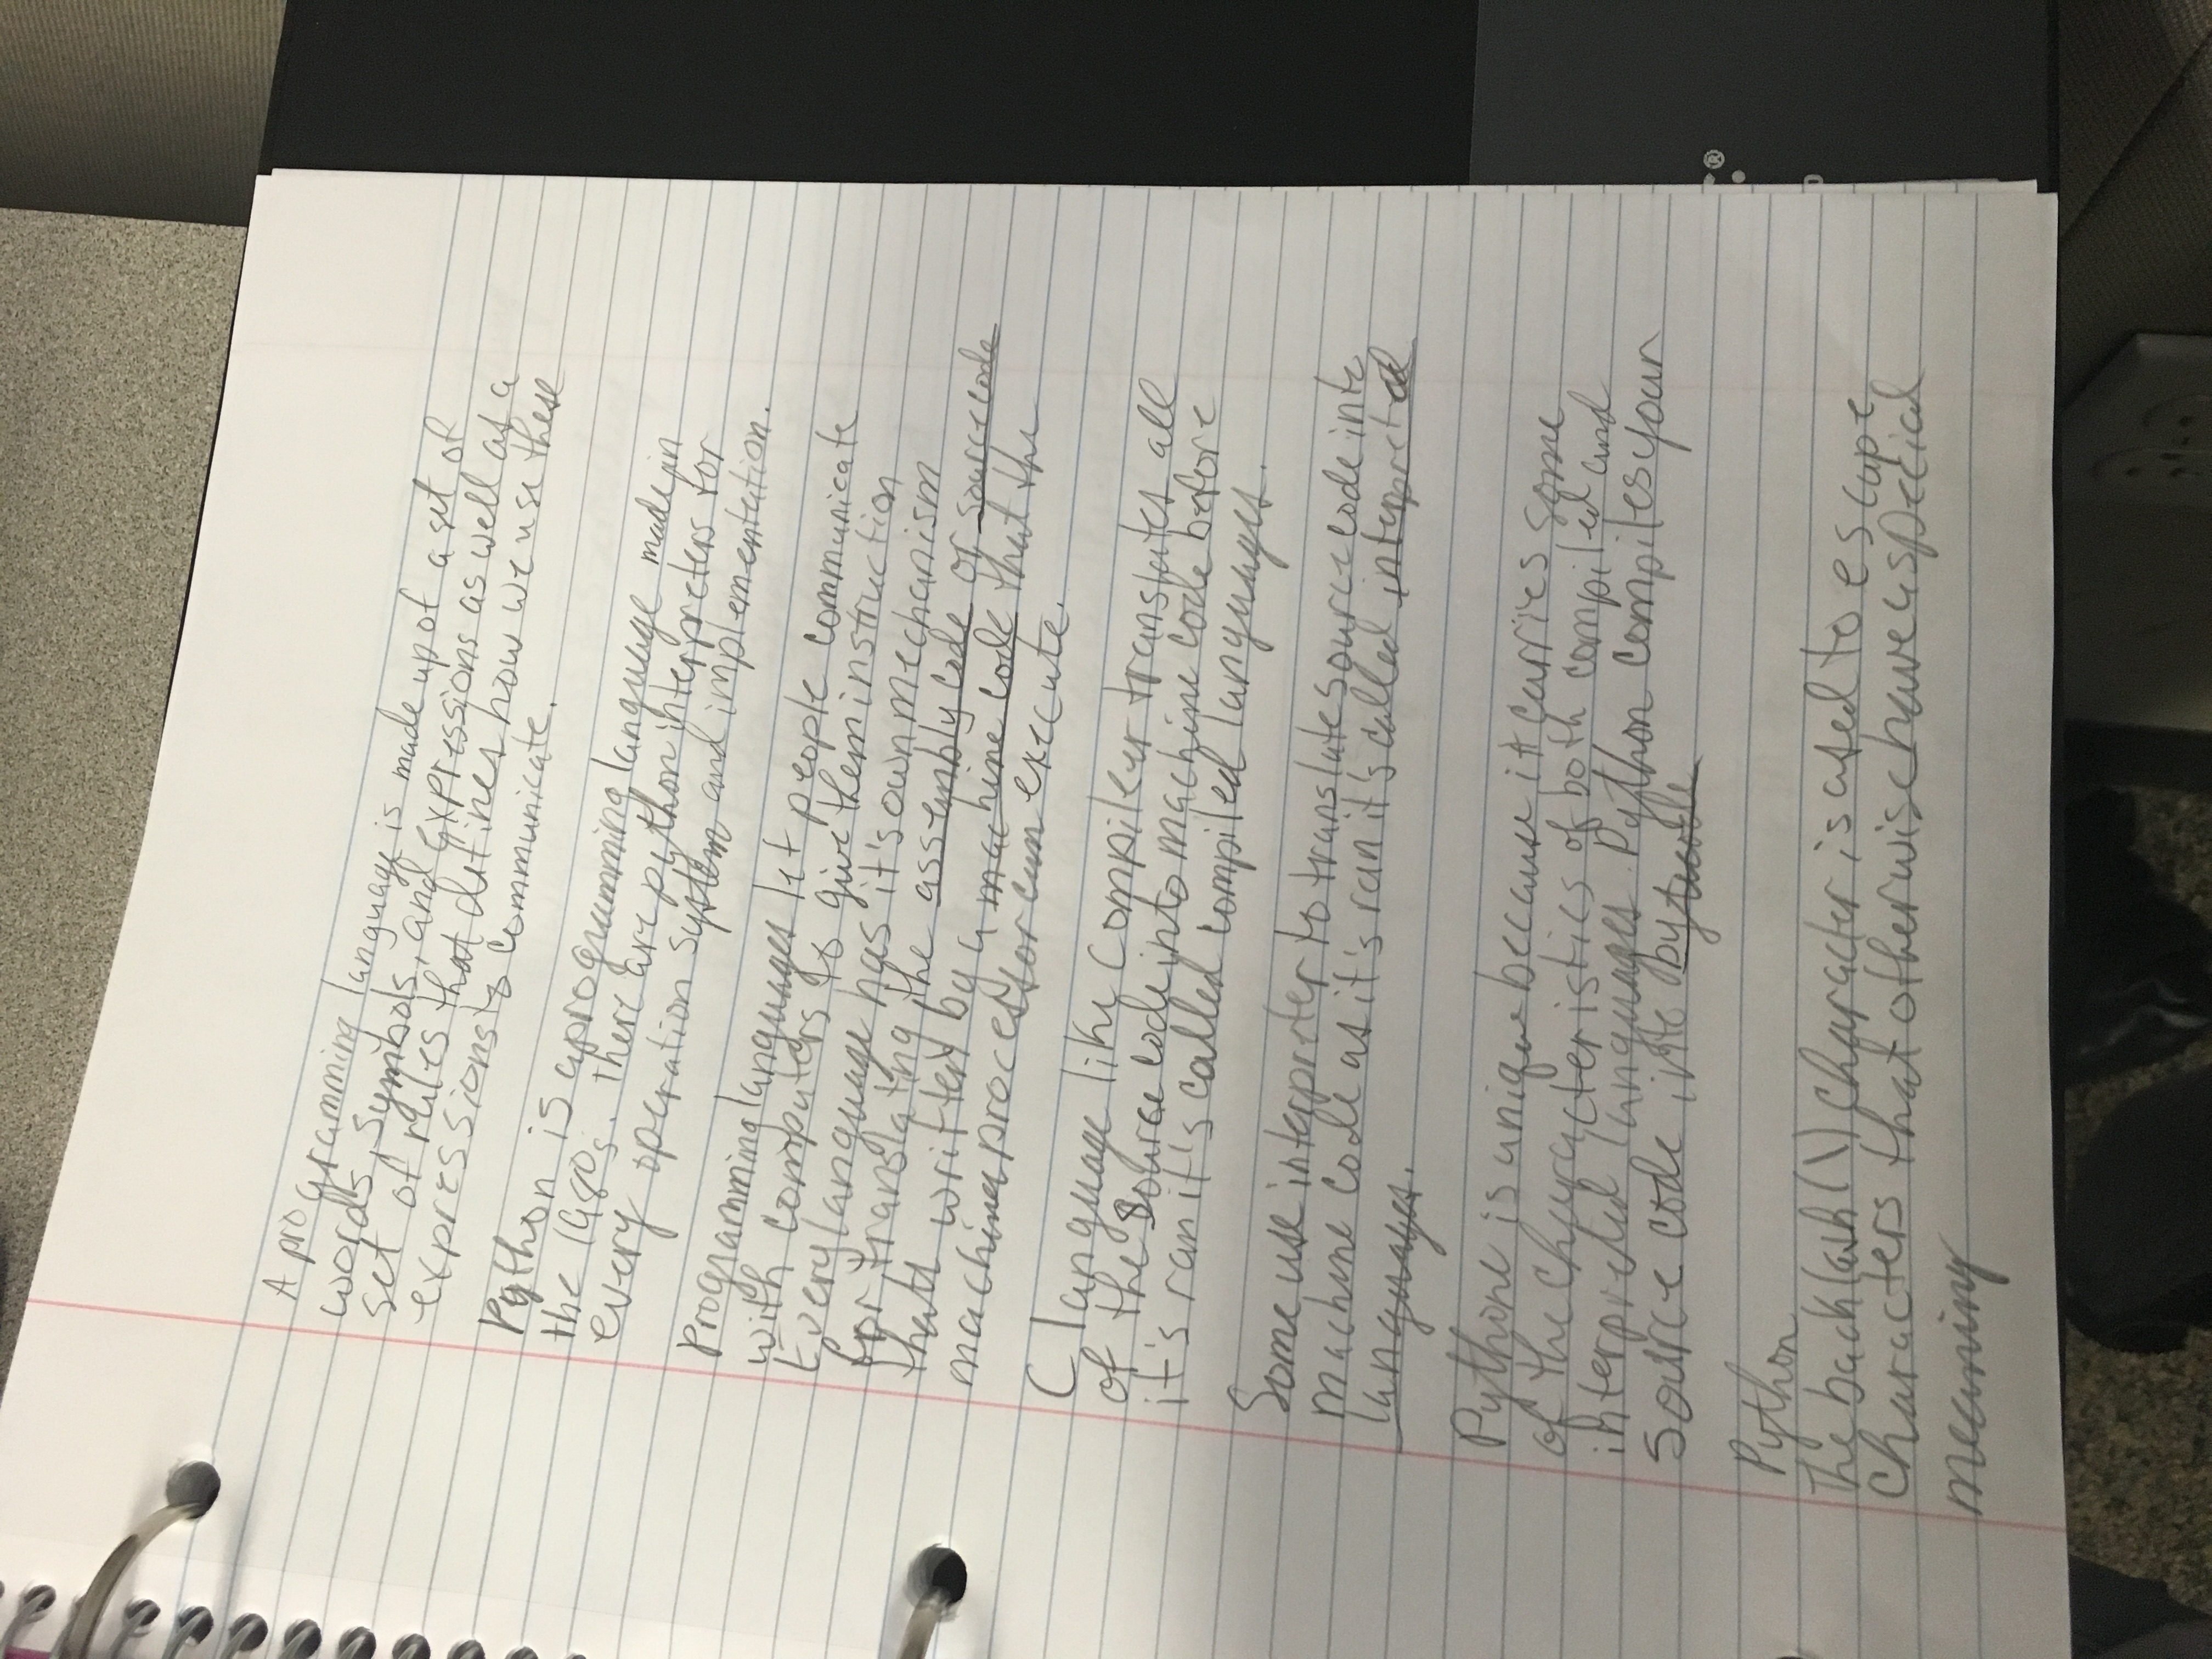 A programming language is made up of a set of
words, symbols, and expressions as well as a
set of rules that defines how we use these
expressions to communicate.
Python is a programming language made in
the 1980s. There are python interpreters for
every operation system and implementation.
Programming languages let people communicate
with computers to give them instruction
Every language has it's own mechanism
for translating the assembly code or source code
that written by a machine code that the
machine processor can execute.
C language like Compiler translates all
of the source code into machine code before
it's ran it's called compiled languages.
Some use interpreter to translate source code into
machine code as it's ran it's called interpreted
languages.
Pythone is unique because it carries some
of the characteristics of both compiled and
interpreted languages. Python compiles your
source code into bytecode
Python
The backlash (\) character is used to escape
characters that otherwise have a special
meaning
®